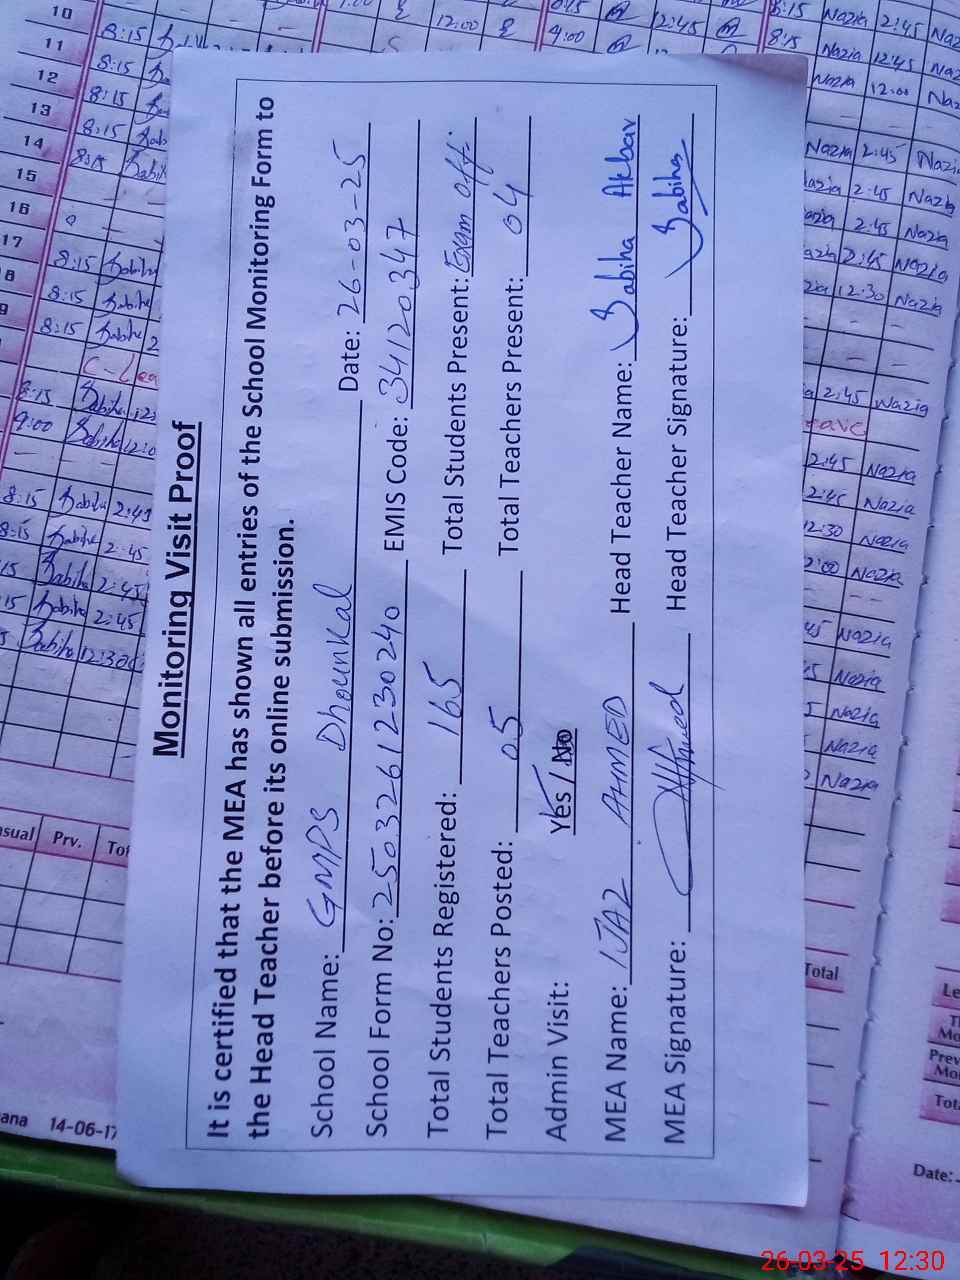 Monitoring Visit Proof
It is certified that the MEA has shown all entries of the School Monitoring Form to
the Head Teacher before its online submission.
School Name: GMPS Dhounkal Date: 26-03-25
School Form No: 2503261230240 EMIS Code: 34120347
Total Students Registered: 165 Total Students Present: Exam off.
Total Teachers Posted: 05 Total Teachers Present: 04
Admin Visit: Yes / No
MEA Name: IJAZ AHMED Head Teacher Name: Sabiha Akbar
MEA Signature: Ahmed Head Teacher Signature: Sabiha
10
11 8:15
12 8:15
13 8:15
14 8:15
15 8:15
16
17
8:15 Sabiha
8:15 Sabiha
8:15 Sabiha 2
C-Lea
8:15 Sabiha 12
9:00 Sabiha 12:0
8:15 Sabiha 2:45
8:15 Sabiha 2:45
15 Sabiha 2:45
15 Sabiha 2:45
Sabiha 12:30
12:00
8:15 12:45 8:15 Nazia 2:45 Naz
9:00 8:15 Nazia 12:45 Naz
Nazia 12:00 Naz
Nazia 2:45 Nazi
Nazia 2:45 Nazia
azia 2:45 Nazia
azia 2:45 Nazia
zia 12:30 Nazia
a 2:45 Nazia
eave
2:45 Nazia
2:45 Nazia
12:30 Nazia
2:00 Nazia
45 Nazia
5 Nazia
5 Nazia
Nazia
Nazia
sual Prv. Tot
Total
Le
Th
Mo
Prev
Mo
Tota
Date:
ana 14-06-17
26-03-25 12:30